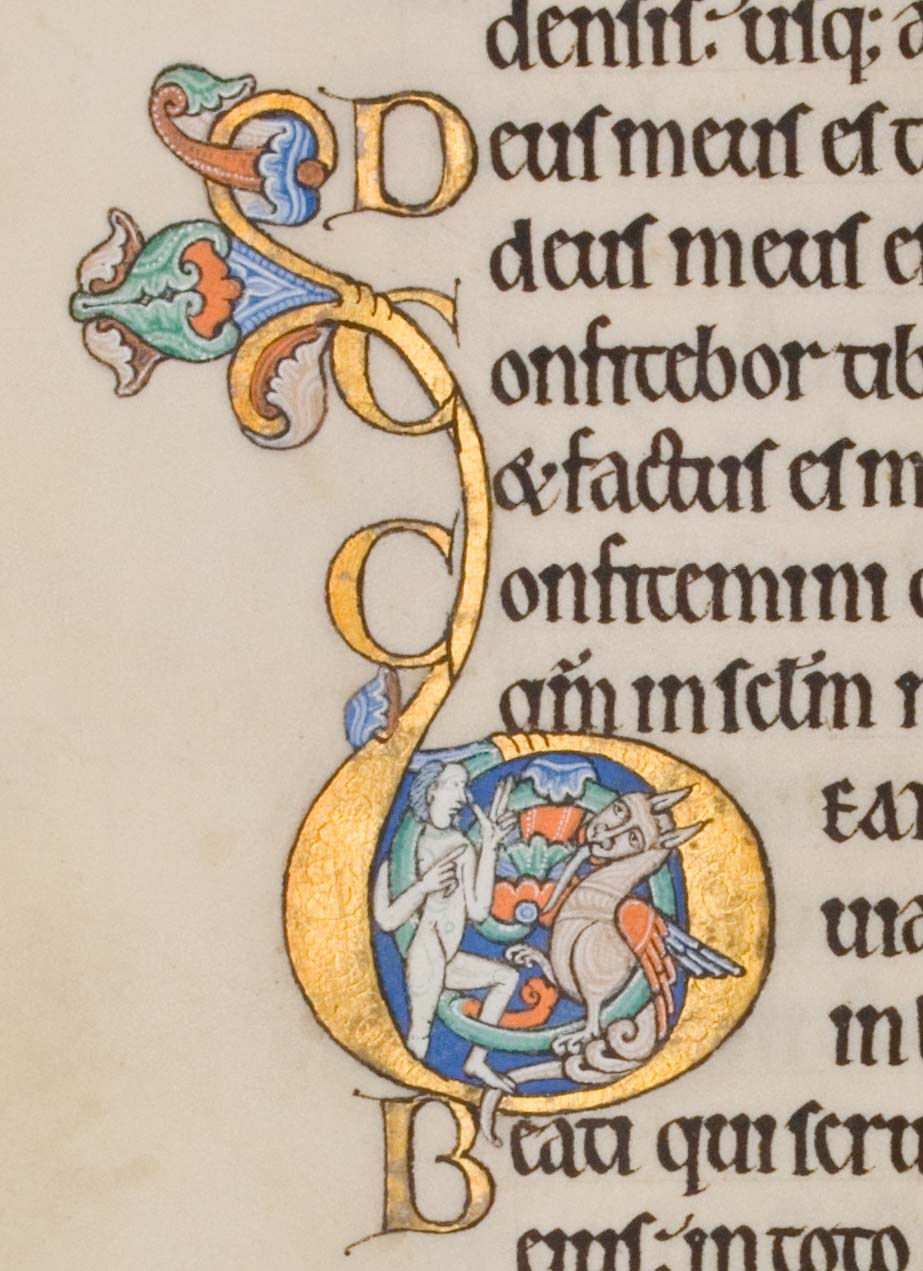 densis: usq; a
Deus meus es t
deus meus es
Confitebor tib
& factus es m
Confitemini
qm̄ in sclm̄ m
BEA
uia
in
Beati qui scru
eius: in toto